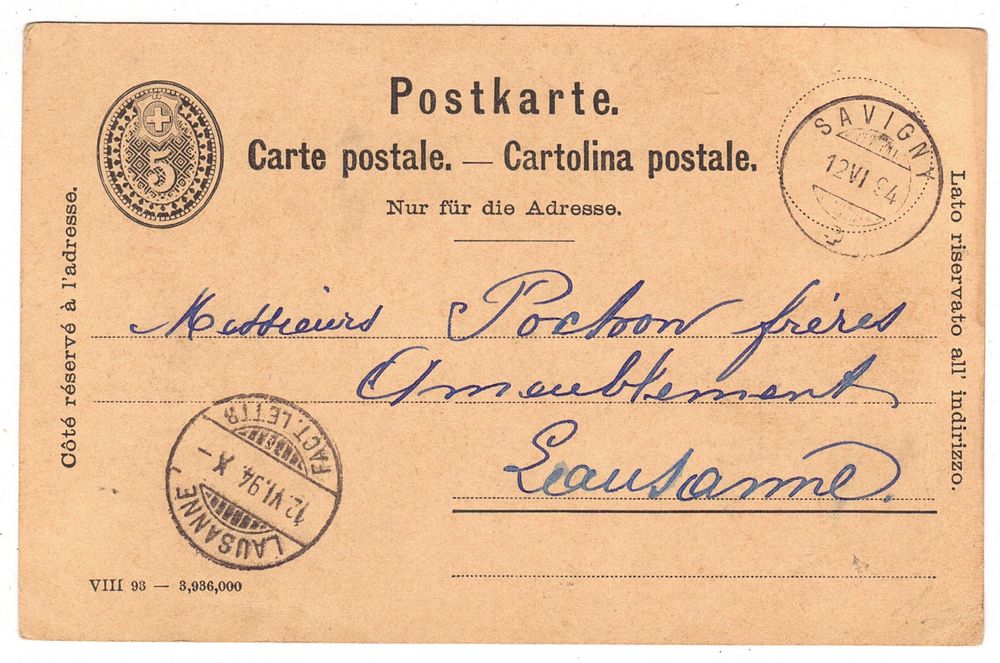 5
Postkarte.
Carte postale. — Cartolina postale.
Nur für die Adresse.
SAVIGNY
12 VI 94
Côté réservé à l'adresse.
Lato riservato all' indirizzo.
Messieurs Pochon frères
Ameublement
Lausanne.
LAUSANNE
12 VI. 94. X –
FACT. LETTR.
VIII 93 — 3,936,000